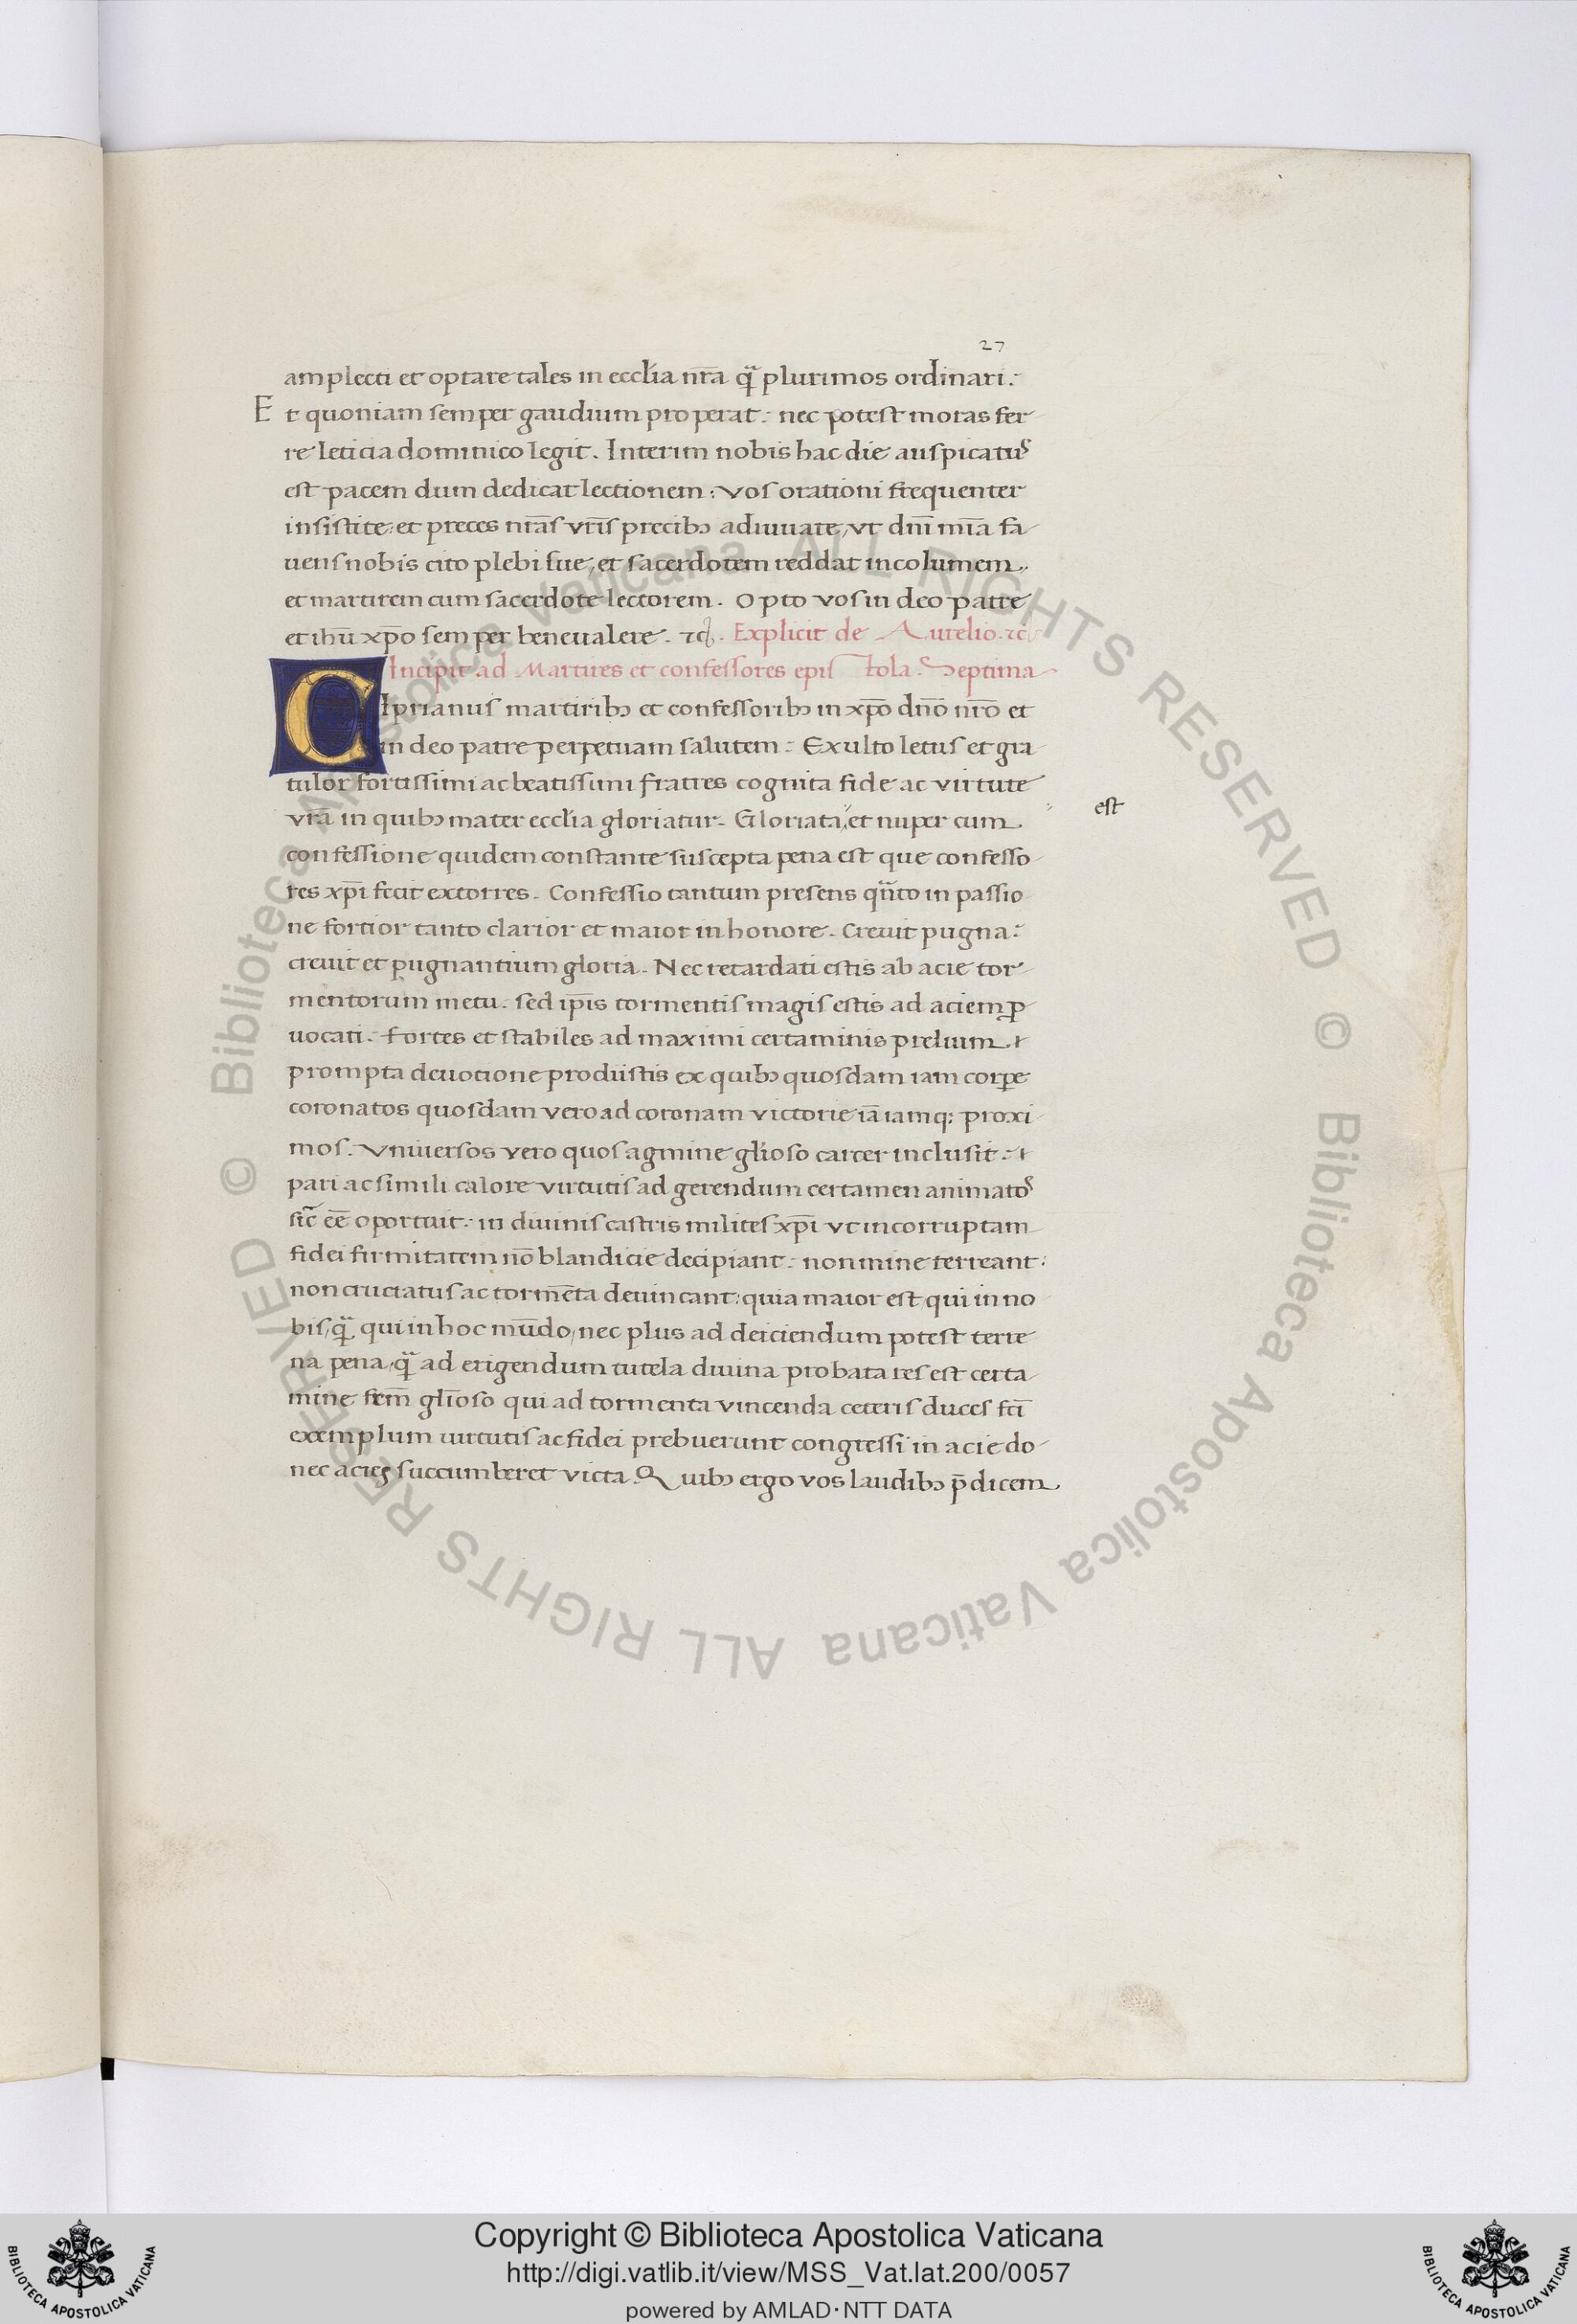 27
amplecti et optare tales in ecclīa nr̄a q̄ plurimos ordinari.
Et quoniam semper gaudium properat: nec potest moras fer
re leticia dominico legit. Interim nobis hac die auspicatus
est pacem dum dedicat lectionem: vos orationi frequenter
insistite: et preces nr̄as vr̄is precibꝫ adiuuate, vt dn̄i mīa fa
uens nobis cito plebi sue, et sacerdotem reddat incolumem.
et martirem cum sacerdote lectorem. Opto vos in deo patre
et ihū xp̄o semper beneualere. ⁊c. Explicit de Aurelio. ⁊c
Incipit ad Martires et confessores epistola. Septima
CIprianus martiribꝫ et confessoribꝫ in xp̄o dn̄o nr̄o et
in deo patre perpetuam salutem: Exulto letus et gra
tulor fortissimi ac beatissimi fratres cognita fide ac virtute
vr̄a in quibꝫ mater ecclīa gloriatur. Gloriata, et nuper cum
est
confessione quidem constante suscepta pena est que confesso
res xp̄i fecit extorres. Confessio tantum presens qn̄to in passio
ne fortior tanto clarior et maior in honore. Creuit pugna:
creuit et pugnantium gloria. Nec retardati estis ab acie tor
mentorum metu. sed ip̄is tormentis magis estis ad aciem ꝓ
uocati. Fortes et stabiles ad maximi certaminis prelium
prompta deuotione prodiistis ex quibꝫ quosdam iam corꝑe
coronatos quosdam vero ad coronam victorie iā iamq; proxi
mos. Vniuersos vero quos agmine glīoso carcer inclusit:
pari ac simili calore virtutis ad gerendum certamen animatos
sic̄ eē oportuit: in diuinis castris milites xp̄i vt incorruptam
fidei firmitatem nō blandicie decipiant: non mine terreant:
non cruciatus ac tormēta deuincant: quia maior est, qui in no
bis, q̄ qui in hoc mūdo, nec plus ad deiciendum potest terre
na pena, q̄ ad erigendum tutela diuina probata res est certa
mine frm̄ glīoso qui ad tormenta vincenda ceteris duces fc̄i
exemplum uirtutis ac fidei prebuerunt congressi in acie do
nec acies succumberet victa. Quibꝫ ergo vos laudibꝫ p̄dicem
© Biblioteca Apostolica Vaticana ALL RIGHTS RESERVED © Biblioteca Apostolica Vaticana ALL RIGHTS RESERVED
Copyright © Biblioteca Apostolica Vaticana
http://digi.vatlib.it/view/MSS_Vat.lat.200/0057
powered by AMLAD·NTT DATA
BIBLIOTECA APOSTOLICA VATICANA
BIBLIOTECA APOSTOLICA VATICANA